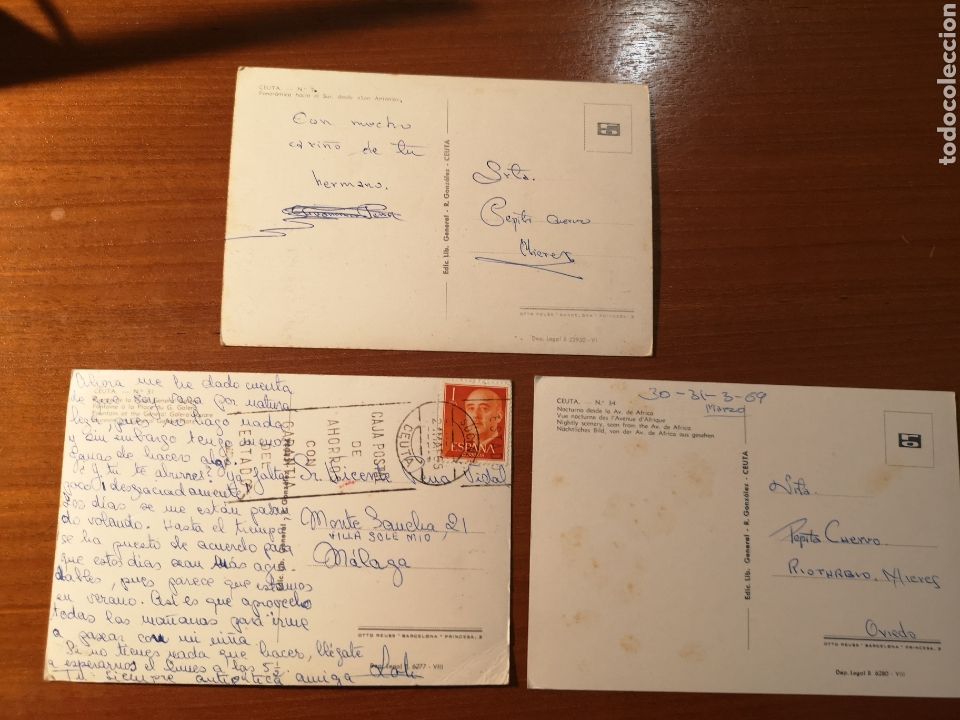 CEUTA. — N.º
Panorámica hacia el Sur, desde «San Antonio»
Con mucho
cariño de tu
hermano.
Edic. Lib. General - R. González - CEUTA
Srta.
Pepita Cuervo
Mieres
OTTO REUSS "BARCELONA" PRINCESA, 3
Dep. Legal B 23930 - VI
Ahora me he dado cuenta
de que soy vaga por natura
leza, pues no hago nada
y sin embargo tengo menos
ganas de hacer algo.
Y tú te aburres? Ya falta
poco, desgraciadamente.
Los días se me están pasan
do volando. Hasta el tiempo
se ha puesto de acuerdo para
que estos días sean más agra
dables, pues parece que estamos
en verano. Así es que aprovecho
todas las mañanas para irme
a pasear con mi niña
Si no tienes nada que hacer, llégate
a esperarnos el lunes a las 5½
Tu siempre auténtica amiga Loli
CEUTA. — N.º 31
CAJA POSTAL
DE
AHORROS
CON
DEL ESTADO
CEUTA
1
ESPAÑA
CORREOS
Sr. Vicente Vidal
Monte Sancha, 21
VILA SOLE MIO
Málaga
OTTO REUSS "BARCELONA" PRINCESA, 3
Dep. Legal B. 6277 - VIII
CEUTA. — N.º 34
Nocturno desde la Av. de Africa
Vue nocturne des l'Avenue d'Afrique
Nightly scenery, seen from the Av. de Africa
Nächtliches Bild, von der Av. de Africa aus gesehen
30-31-3-69
Marzo
Edic. Lib. General - R. González - CEUTA
Srta.
Pepita Cuervo
RIOTURBIO. Mieres
Oviedo
OTTO REUSS "BARCELONA" PRINCESA, 3
Dep. Legal B. 6280 - VIII
todocoleccion